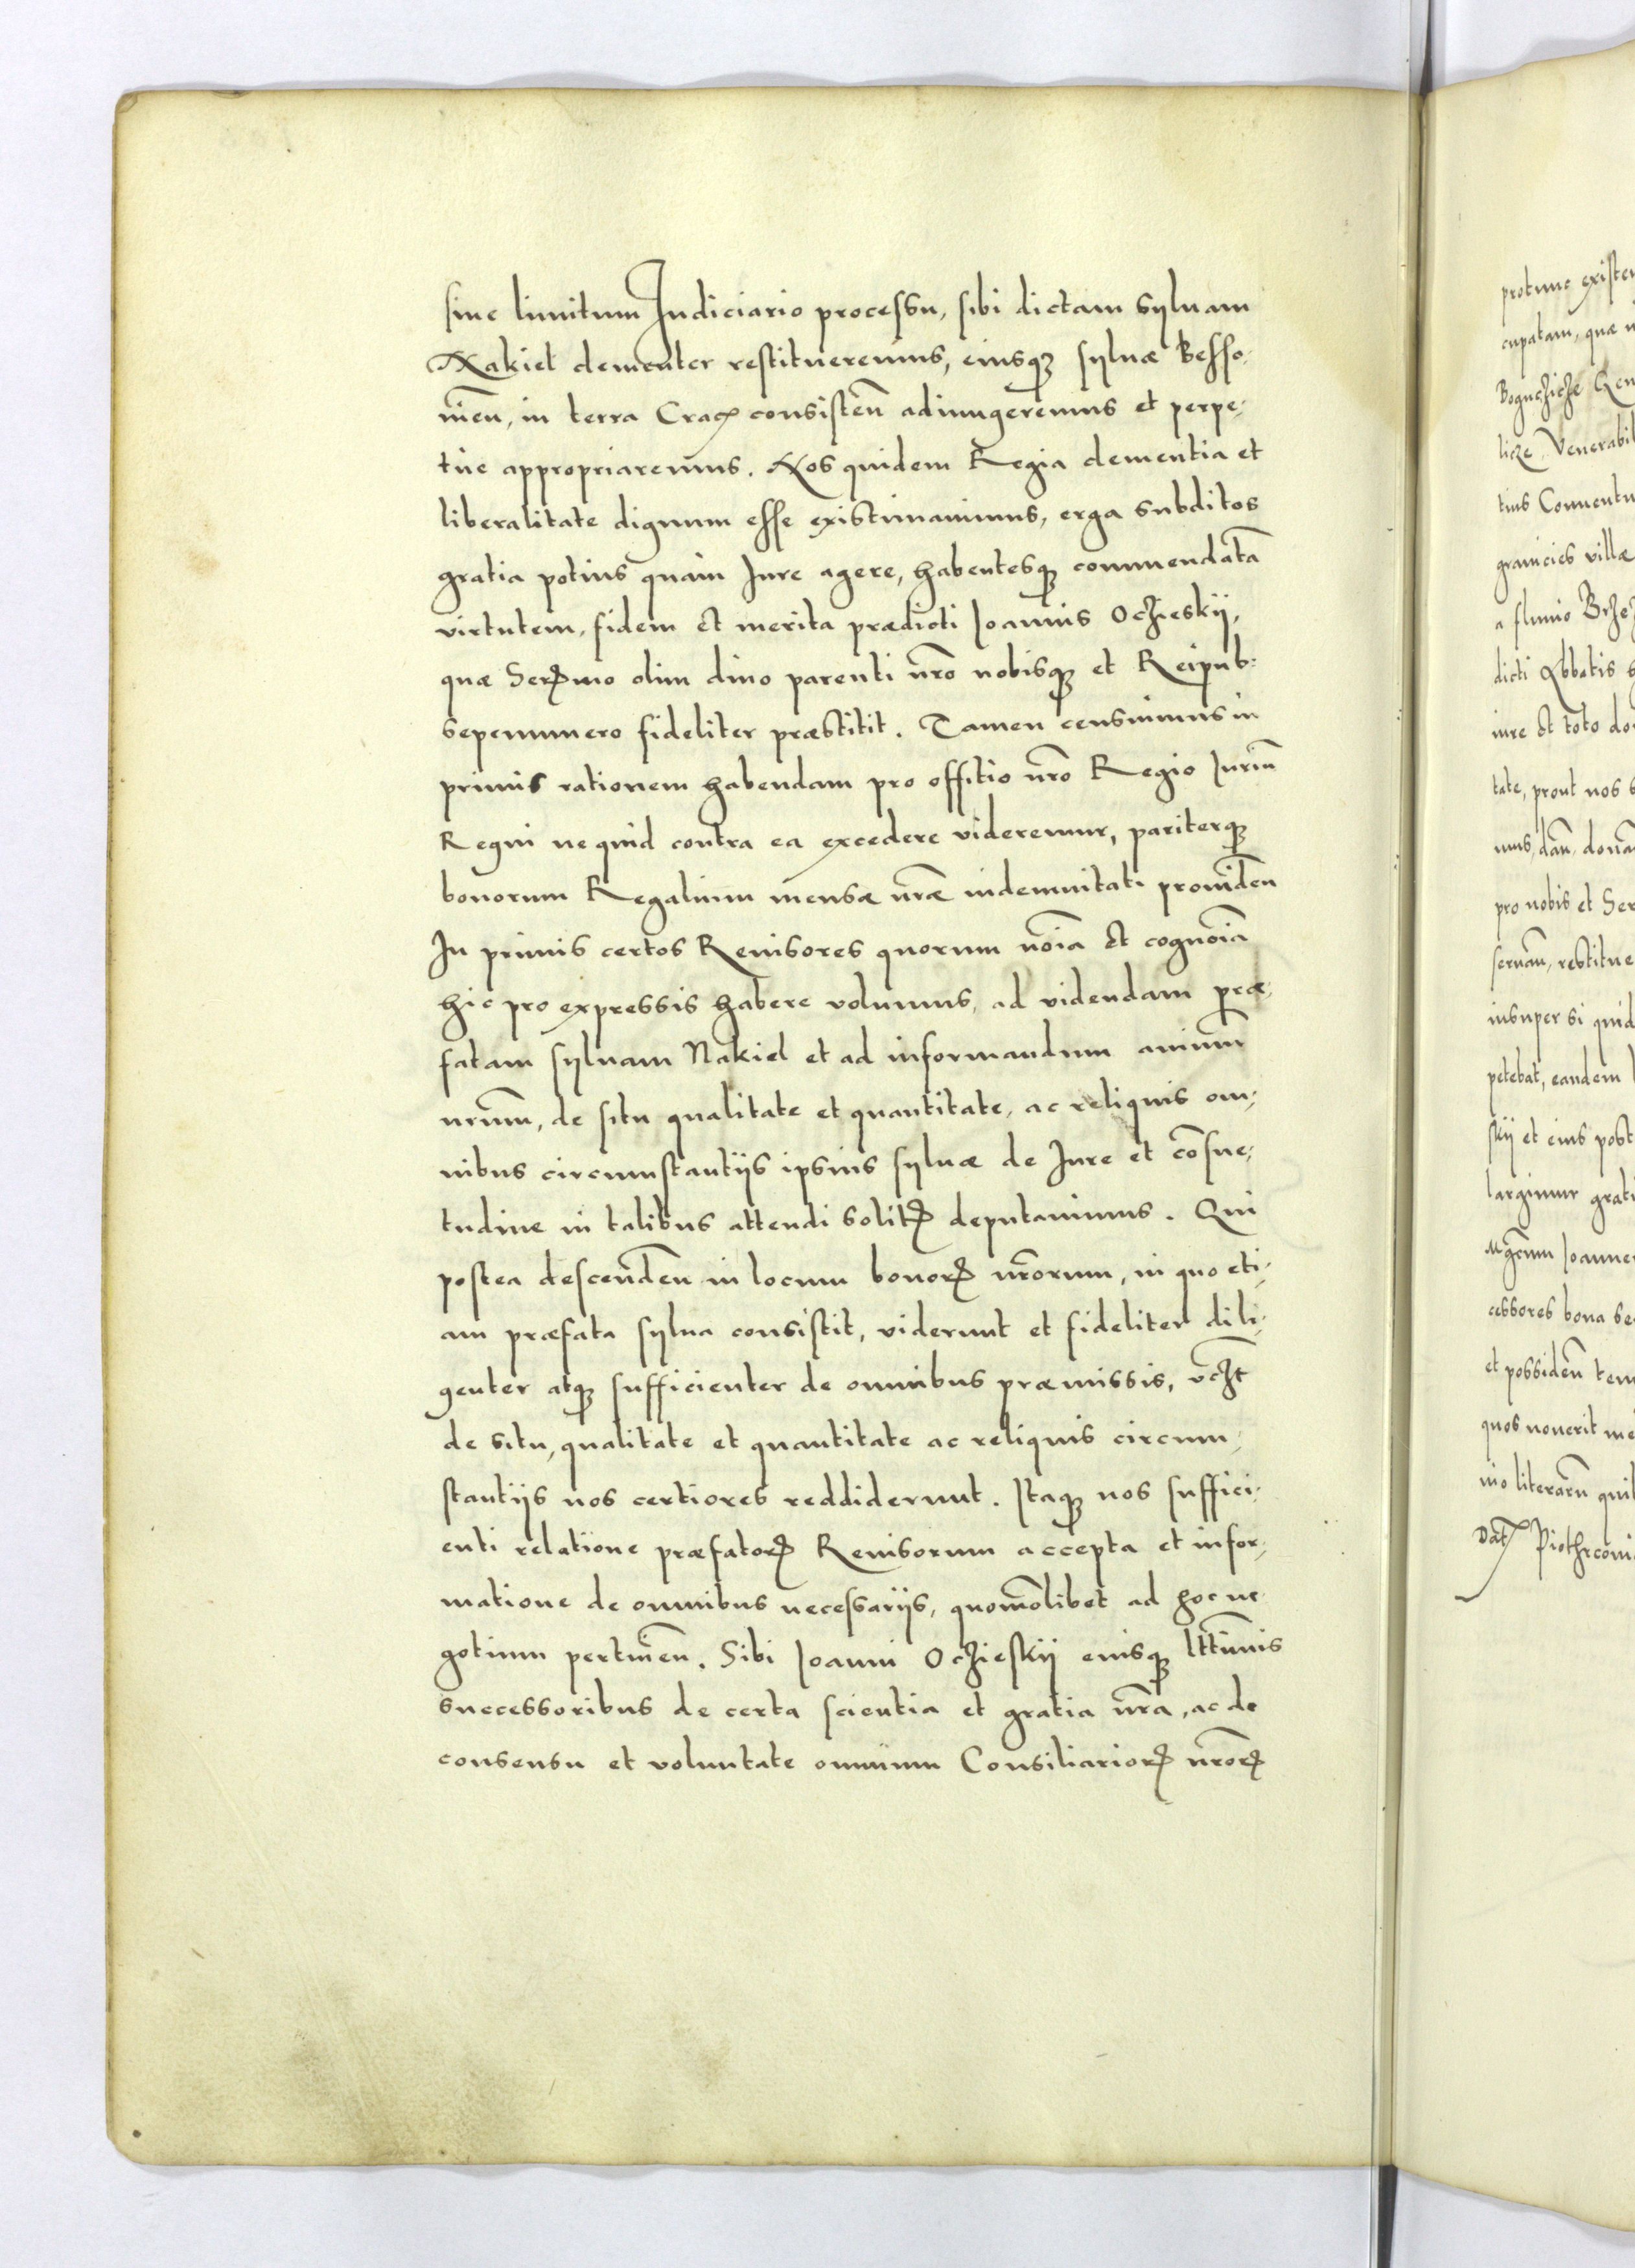 sine limitum Iudiciario processu, sibi dictam syluam
Nakiel clementer restitueremus, eiusq3 syluæ Besso¬
nień, in terra Cracꝭ consisteñ adiungeremus et perpe¬
tue appropriaremus. Nos quidem Regia clementia et
liberalitate dignum esse existimauimus, erga subditos
gratia potius quàm Iure agere, habentesq3 commendatā
virtutem, fidem et merita prædicti Ioannis Oczieskij,
quæ Serꝫmo olim diuo parenti nr̄o nobisq3 et Reipub:
sepenumero fideliter præstitit. Tamen censuimus in
primis rationem habendam pro offitio nr̄o Regio Iuriū
Regni ne quid contra ea excedere videremur, pariterq3
bonorum Regalium mensæ nr̄æ indemnitati prouideñ
In primis certos Reuisores quorum noīa et cognoīa
hic pro expressis habere volumus, ad videndam præ¬
fatam syluam Nakiel et ad informandum animū
nrūm, de situ qualitate et quantitate, ac reliquis om¬
nibus circumstantijs ipsius syluæ de Iure et cōsue¬
tudine in talibus attendi solitꝫ deputauimus. Qui
postea descendeñ in locum bonorꝫ nr̄orum, in quo eti¬
am præfata sylua consistit, viderunt et fideliter dili¬
genter atq3 sufficienter de omnibus præmissis, vc̄zt
de situ, qualitate et quantitate ac reliquis circum¬
stantijs nos certiores reddiderunt. Itaq3 nos suffici¬
enti relatione præfatorꝫ Reuisorum accepta et infor¬
matione de omnibus necessarijs, quomōlibet ad hoc ne¬
gotium pertineñ. Sibi Ioanni Oczieskij eiusq3 lttīmis
successoribus de certa scientia et gratia nr̄a, ac de
consensu et voluntate omnium Consiliariorꝫ nr̄orꝫ
protunc
cupatam, quæ
Venerabil
tius Conuentu
granicies villæ
a fluuio
dicti Abbatis
iure et toto
tate, prout nos
mus, dañ, donañ
pro nobis et Ser
seruañ, restitue
insuper si quid
petebat, eandem
skij et eius post
largimur grati
Mgcūm Ioannem
cessores bona
et possideñ
quos nouerit